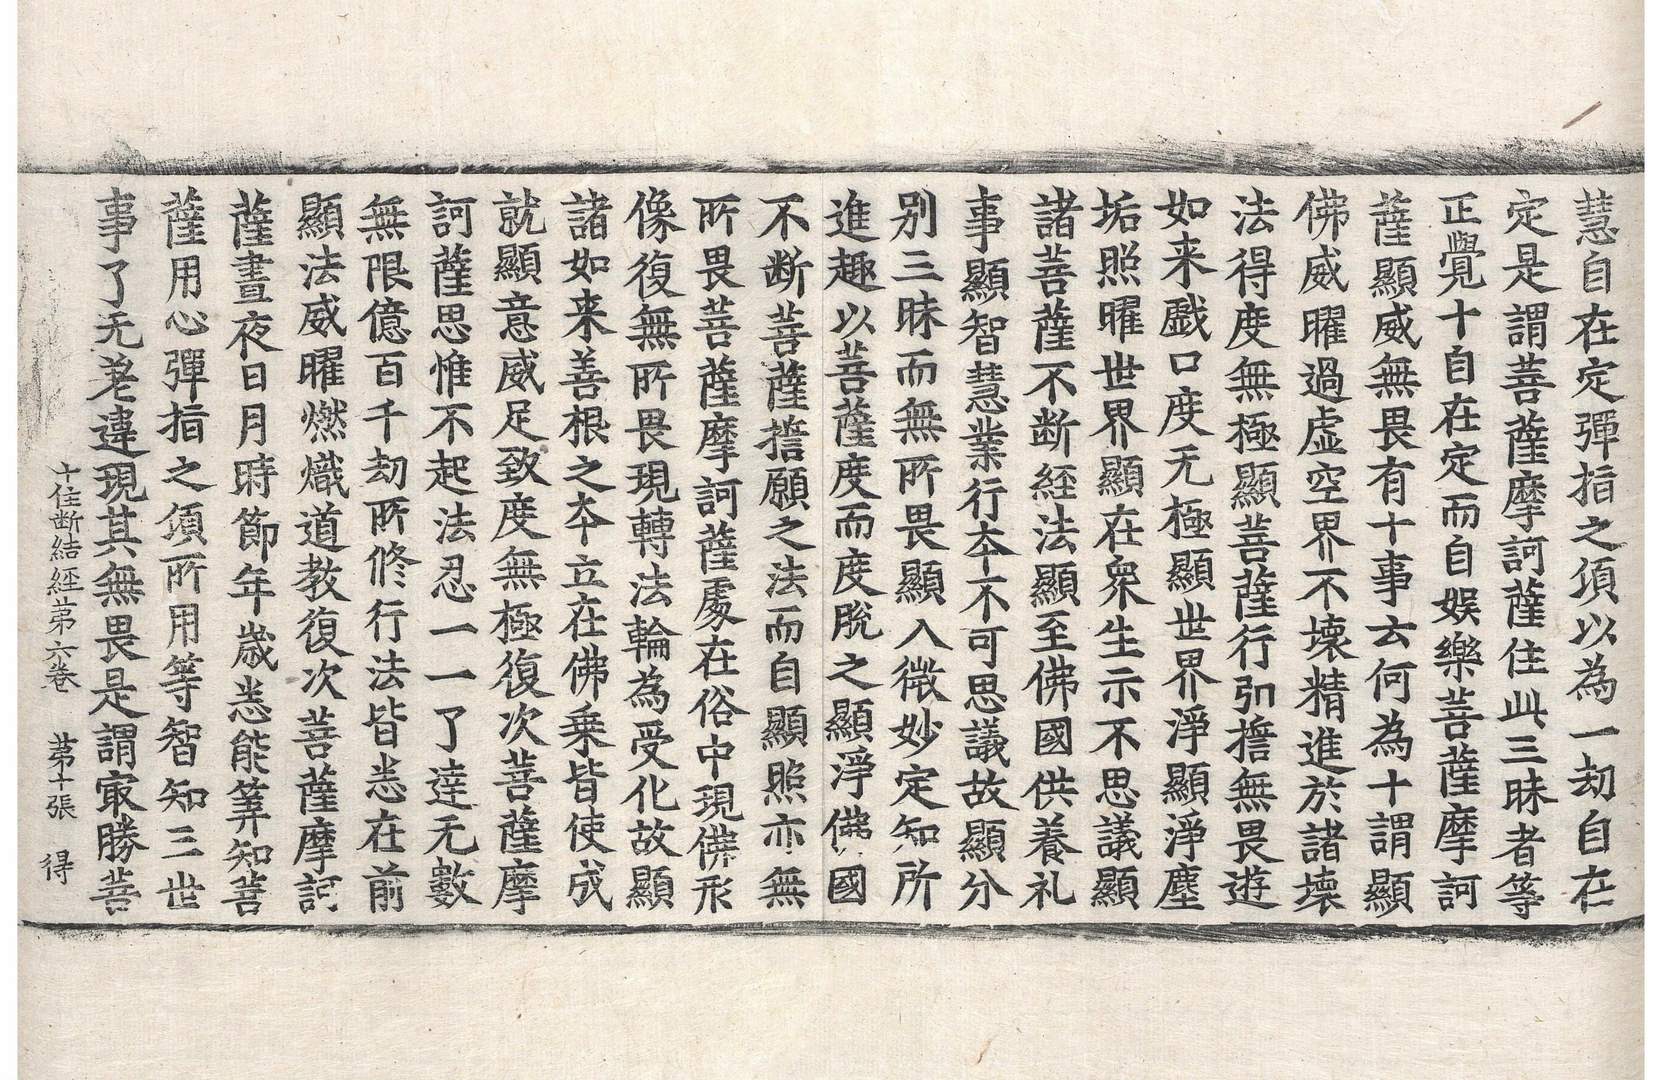 慧自在定彈指之須以為一劫自在
定是謂菩薩摩訶薩住此三昧者等
正覺十自在定而自娛樂菩薩摩訶
薩顯威無畏有十事云何為十謂顯
佛威曜過虛空界不壞精進於諸壞
法得度無極顯菩薩行弘擔無畏遊
如来戲口度无極顯世界淨顯淨塵
垢照曜世界顯在衆生示不思議顯
諸菩薩不断経法顯至佛國供養礼
事顯智慧業行夲不可思議故顯分
別三昧而無所畏顯入微妙定知所
進趣以菩薩度而度脫之顯淨佛國
不断菩薩擔願之法而自顯照亦無
所畏菩薩摩訶薩處在俗中現佛形
像復無所畏現轉法輪為受化故顯
諸如来善根之夲立在佛乗皆使成
就顯意威足致度無極復次菩薩摩
訶薩思惟不起法忍一一了達无數
無限億百千劫所修行法皆悉在前
顯法威曜燃熾道教復次菩薩摩訶
薩晝夜日月時節年歲悉能筭知菩
薩用心彈指之須所用等智知三世
事了无差違現其無畏是謂冣勝菩
十住断結經苐六卷 苐十張 得